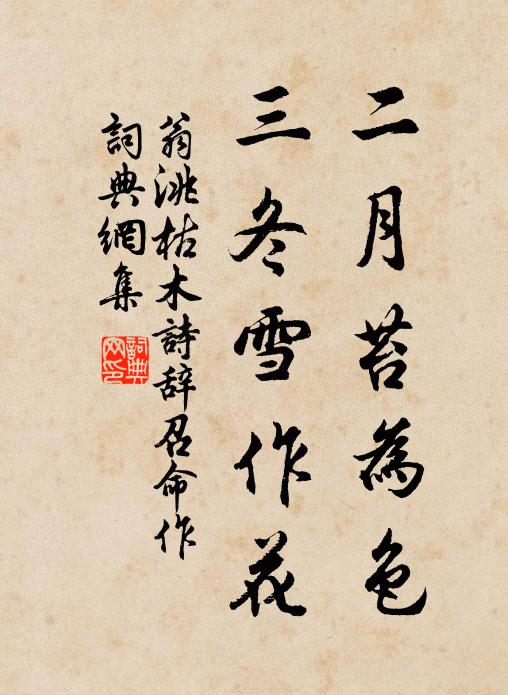 二月苔為色
三冬雪作花
翁洮枯木詩辞召命作
詞典網集
詞典網印